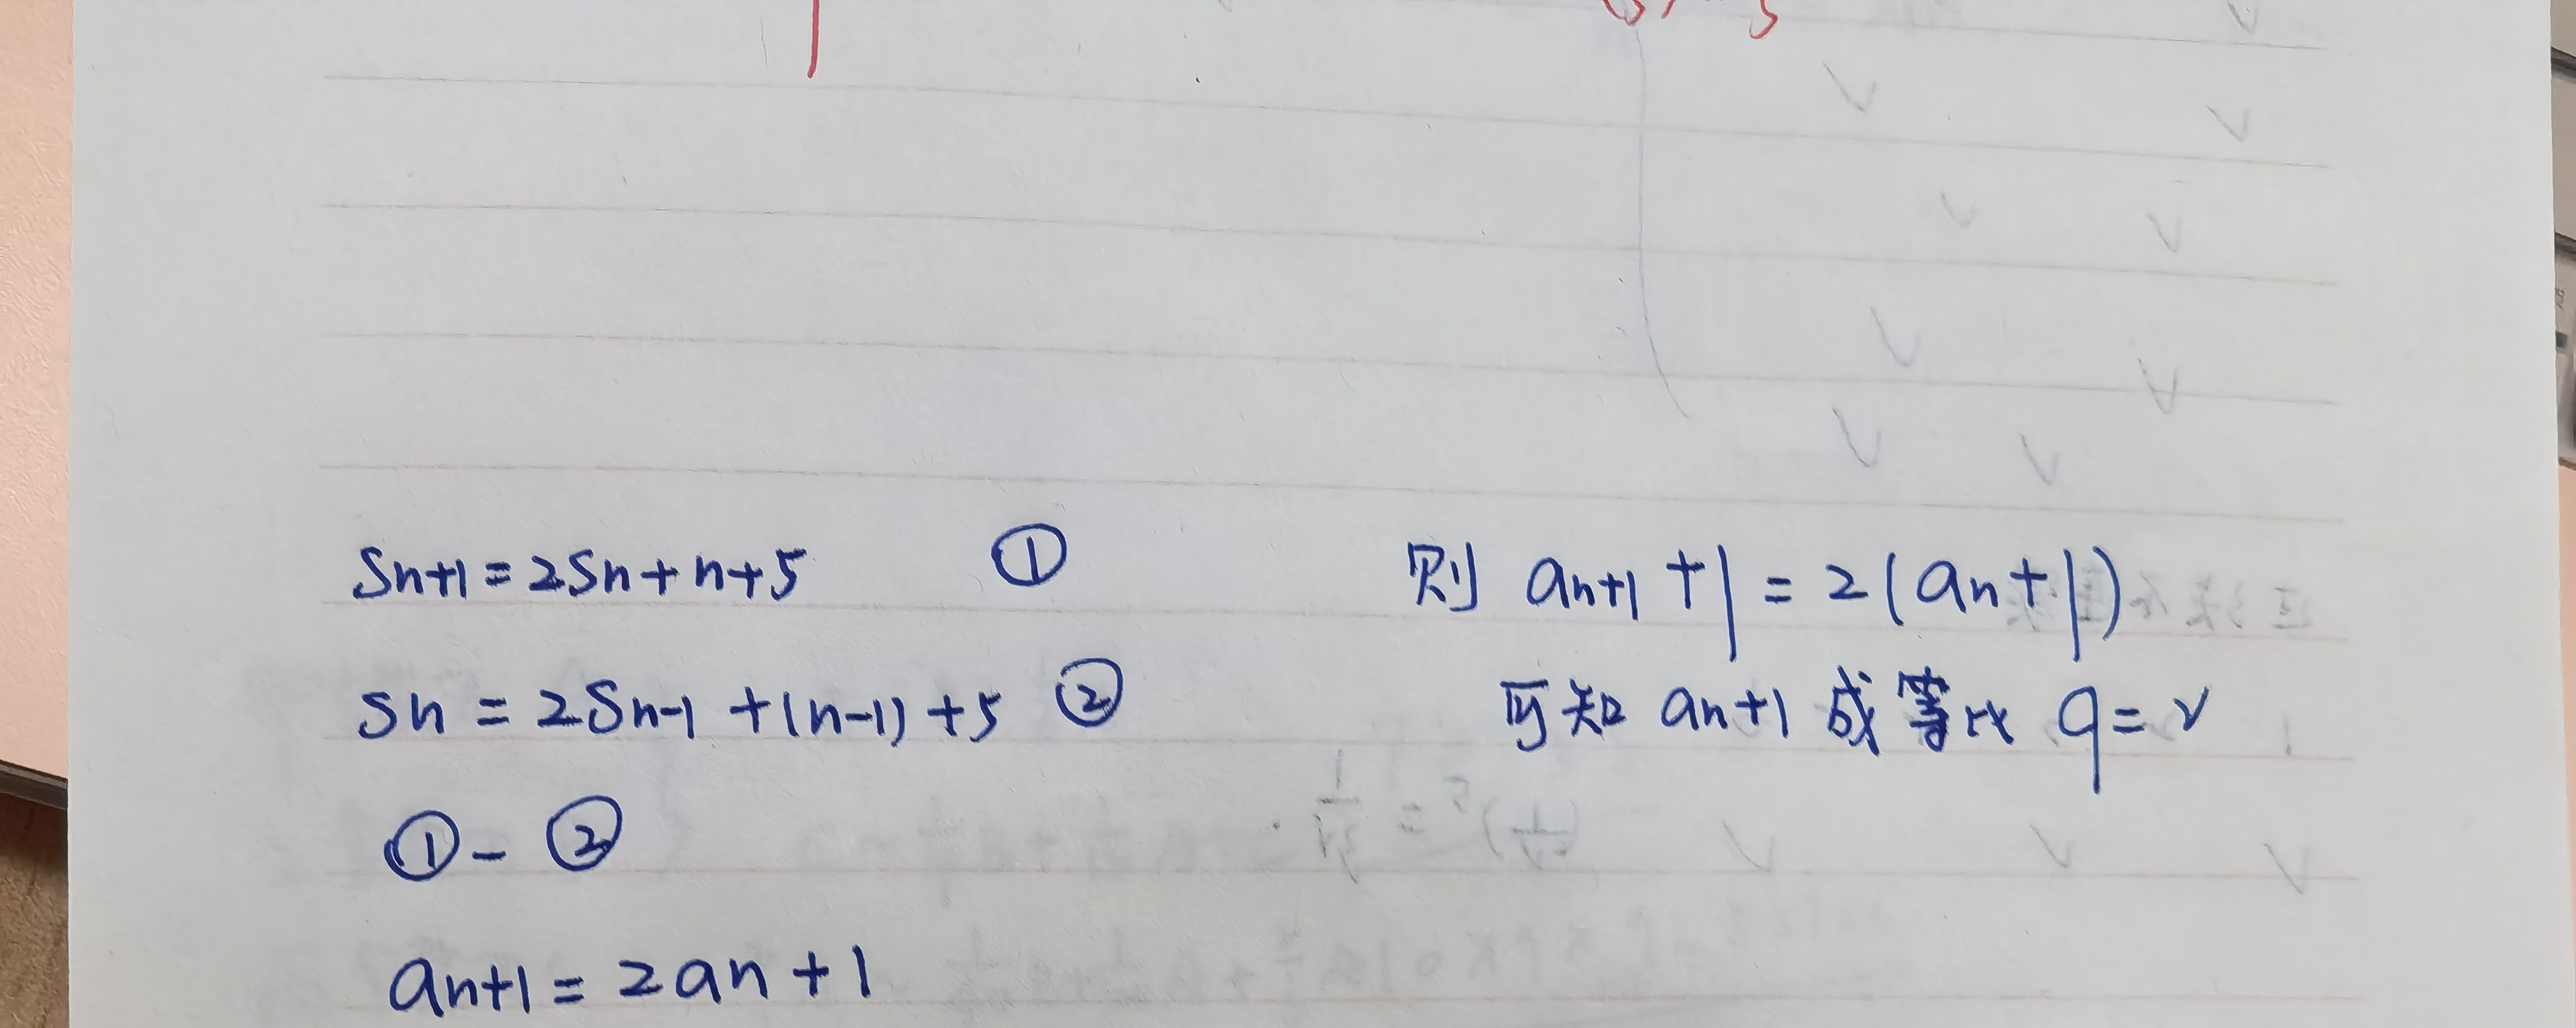 Sn+1=2Sn+n+5 ①
Sn=2Sn-1+(n-1)+5 ②
①-②
an+1=2an+1
则 an+1+1=2(an+1)
可知 an+1 成等比 q=2